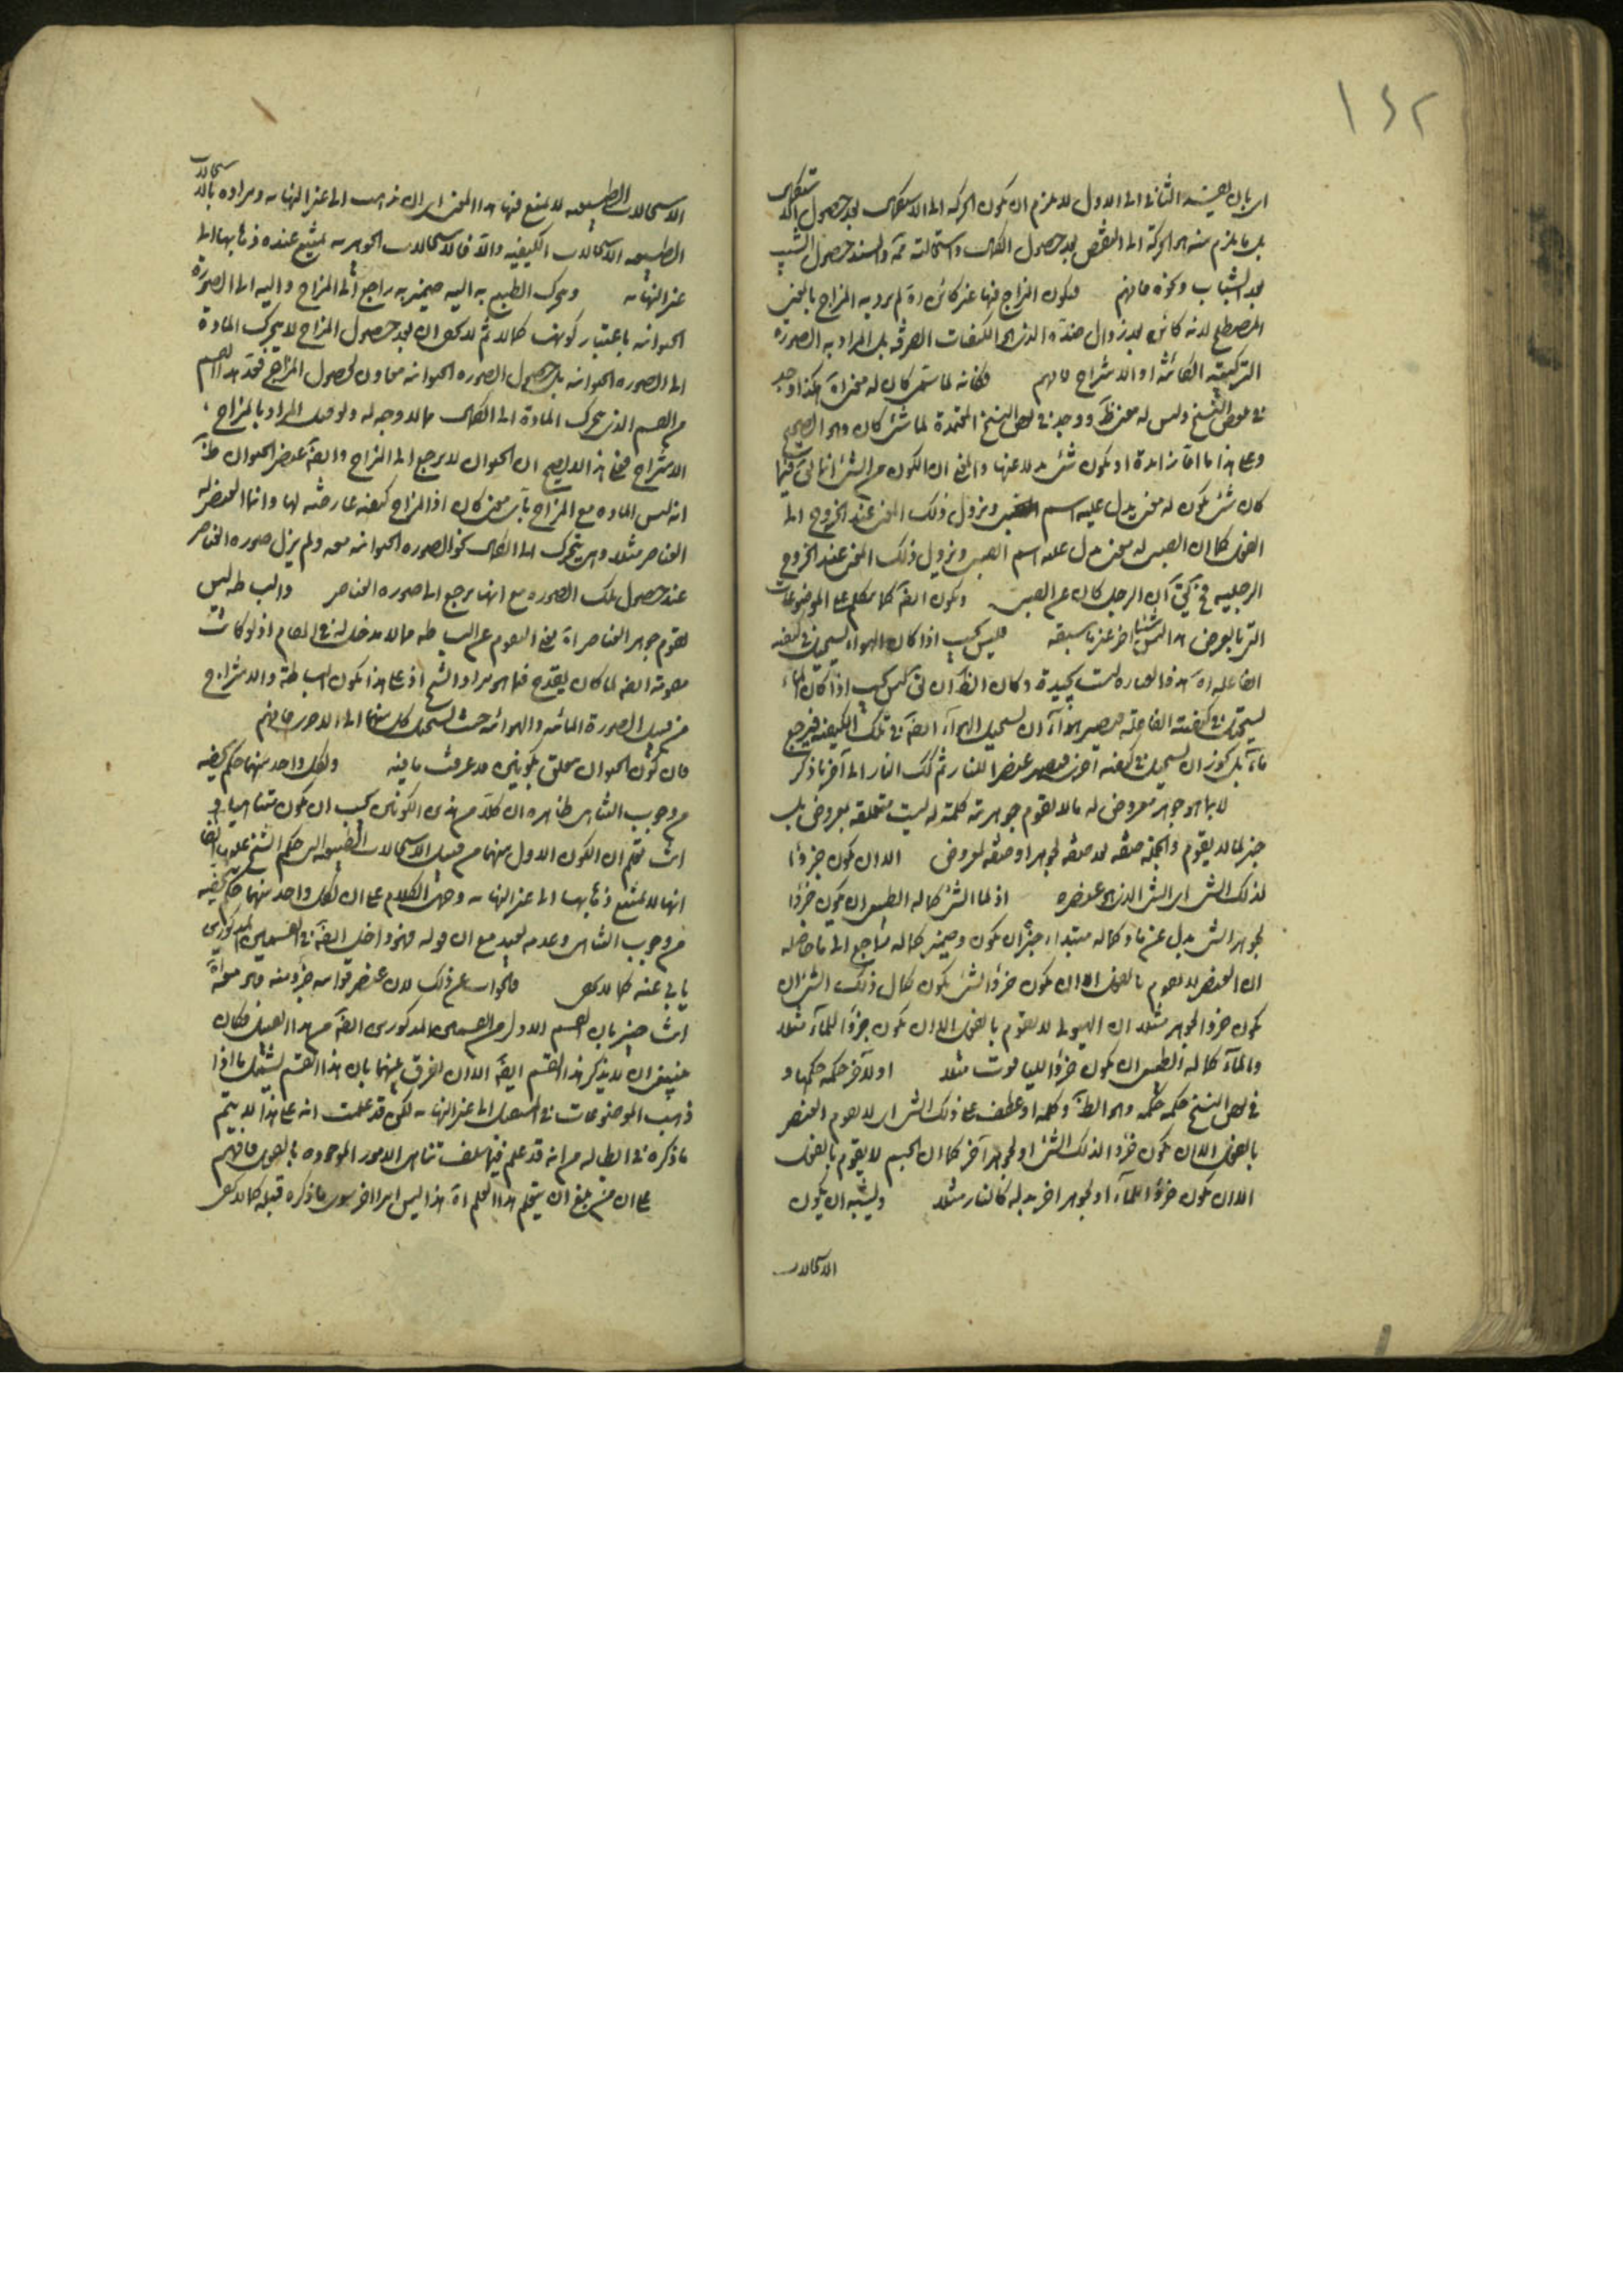 ١٤٢
اى بان يعيد الثانى الى الاول لا يلزم ان يكون الحركة الى الاستكمال بعد حصول الاستكمال
بل ما يلزم منه هو الحركة الى النقص بعد حصول الكمال واستحالته ثمه والسند حصول الشيب
بعد الشباب ونحوه فافهم فيكون المزاج فيها غير كائن اه لم يرد به المزاج بالمعنى
المصطلح لانه كائن بعد زوال ضده الذى هو الكيفيات الصرفة بل المراد به الصورة
التركيبية الكائنة او الامتزاج فافهم فكانه لما سمى كان له معنى اه هكذا وجد
فى بعض النسخ وليس له معنى ظ ووجد فى بعض النسخ المعتمدة لما شئ كان وهو الصحيح
وعلى هذا ما اما زايدة او يكون شئ بدلا عنها والمعنى ان الكون من الشئ انما يق فيما
كان شئ يكون له معنى يدل عليه اسم ويزول ذلك المعنى عند الخروج الى
الفعل كما ان الصبى له معنى يدل عليه اسم الصبى ويزول ذلك المعنى عند الخروج
الرجلية فح يق ان الرجل كان عن الصبى ويكون ايضا كلا يتكلم على الموضوعات
التى بالعرض هذا ليس شيئا اخر غير ما سبقه فليس يجب اذا كان الهواء يستحيل فى كيفيته
الفاعلية اه هذه العبارة ليست بجيدة وكان الظ ان يق ليس يجب اذا كان الماء
يستحيل فى كيفيته الفاعلة فيصير هواء ان يستحيل الهواء ايضا فى تلك الكيفية فيرجع
ماء بل يجوز ان يستحيل فى كيفية اخرى فيصير عنصرا للنار ثم كك النار الى آخر ما ذكر
لا بما هو جوهر معروض له ما لا يقوم جوهرية كلمة له ليست متعلقة بمعروض بل
خبر لما لا يقوم والجملة صفة بعد صفة لجوهر او صفة لمعروض الا ان يكون جزءا
لذلك الشئ اى الشئ الذى هو عنصره اذ لما الشئ كماله الطبيعى ان يكون جزءا
لجوهر الشئ بدل عن ما وكماله مبتداء خبره ان يكون وضمير كماله راجع الى ما حاصله
ان العنصر لا يقوم بالفعل الا ان يكون جزءا لشئ يكون كمال ذلك الشئ ان
يكون جزءا لجوهر مثلا ان الهيولى لا يقوم بالفعل الا ان يكون جزءا للماء مثلا
والماء كماله الطبيعى ان يكون جزءا للياقوت مثلا او لآخر حكمه حكمها و
فى بعض النسخ حكمه حكمه وهو الظ وكلمة او عطف على ذلك الشئ اى لا يقوم العنصر
بالفعل الا ان يكون جزءا لذلك الشئ او لجوهر آخر كما ان الجسم لا يقوم بالفعل
الا ان يكون جزءا للماء او لجوهر اخر بدله كالنار مثلا ويشبه ان يكون
الاستحالات
الاستحالات الطبيعية لا يمتنع فيها هذا المعنى اى ان يذهب الى غير النهاية ومراده بالاستحالات
الطبيعية الاستحالات الكيفية والا فالاستحالات الجوهرية يمتنع عنده ذهابها الى
غير النهاية ويتحرك الطبع به اليه ضمير به راجع الى المزاج واليه الى الصورة
الحيوانية باعتبار كونها كمالا ثم لا يخفى ان بعد حصول المزاج لا يتحرك المادة
الى الصورة الحيوانية بل حصول الصورة الحيوانية معاون لحصول المزاج فعد هذا القسم
من القسم الذى يتحرك المادة الى الكمال مما لا وجه له ولو قيل المراد بالمزاج
الامتزاج فمع هذا لا يصح ان الحيوان لا يرجع الى المزاج وايضا عنصر الحيوان ظ
انه ليس المادة مع المزاج باى معنى كان اذ المزاج كيفية عارضة لها وانما العنصر له
العناصر مثلا وهى يتحرك الى الكمال نحو الصورة الحيوانية معه ولم يزل صورة العناصر
عند حصول تلك الصورة مع انها يرجع الى صورة العناصر والبساطة ليس
يقوم جوهر العناصر اه نفى التقوم عن البساطة مما لا مدخل له فى المقام اذ لو كانت
مقومة ايضا لما كان يقدح فيما هو مراد الشيخ اذ على هذا يكون البساطة والامتزاج
من قبيل الصورة المائية والهوائية حيث يستحيل كل منهما الى الاخرى فافهم
فان تكون الحيوان متعلق بكونين قد عرفت ما فيه ولكل واحد منهما حكم يخصه
من وجوب التناهى ظاهره ان كلا من هذين الكونين يجب ان يكون متناهيا و
انت تعلم ان الكون الاول منهما من قبيل الاستحالات الطبيعية التى حكم الشيخ عليها ايضا
انها لا يمتنع ذهابها الى غير النهاية وحمل الكلام على ان لكل واحد منهما حكم يخصه
من وجوب التناهى وعدمه بعيد مع ان قوله فهو داخل ايضا فى القسمين المذكورين
يابى عنه كما لا يخفى فالجواب عن ذلك لان عنصر قوامه جزء منه هو معه اه
انت خبير بان القسم الاول من القسمين المذكورين ايضا من هذا القبيل فكان
ينبغى ان لا يذكر هذا القسم ايضا الا ان الفرق بينهما بان هذا القسم يشتمل ما اذا
ذهب الموضوعات فى المستقبل الى غير النهاية لكن قد علمت انه على هذا لا يتم
ما ذكره فى ابطاله من انه قد علم فيما سلف تناهى الامور الموجودة بالفعل فافهم
على ان من يبلغ ان يتعلم هذا العلم اه هذا ليس ايرادا اخر سوى ما ذكره قبله كما لا يخفى